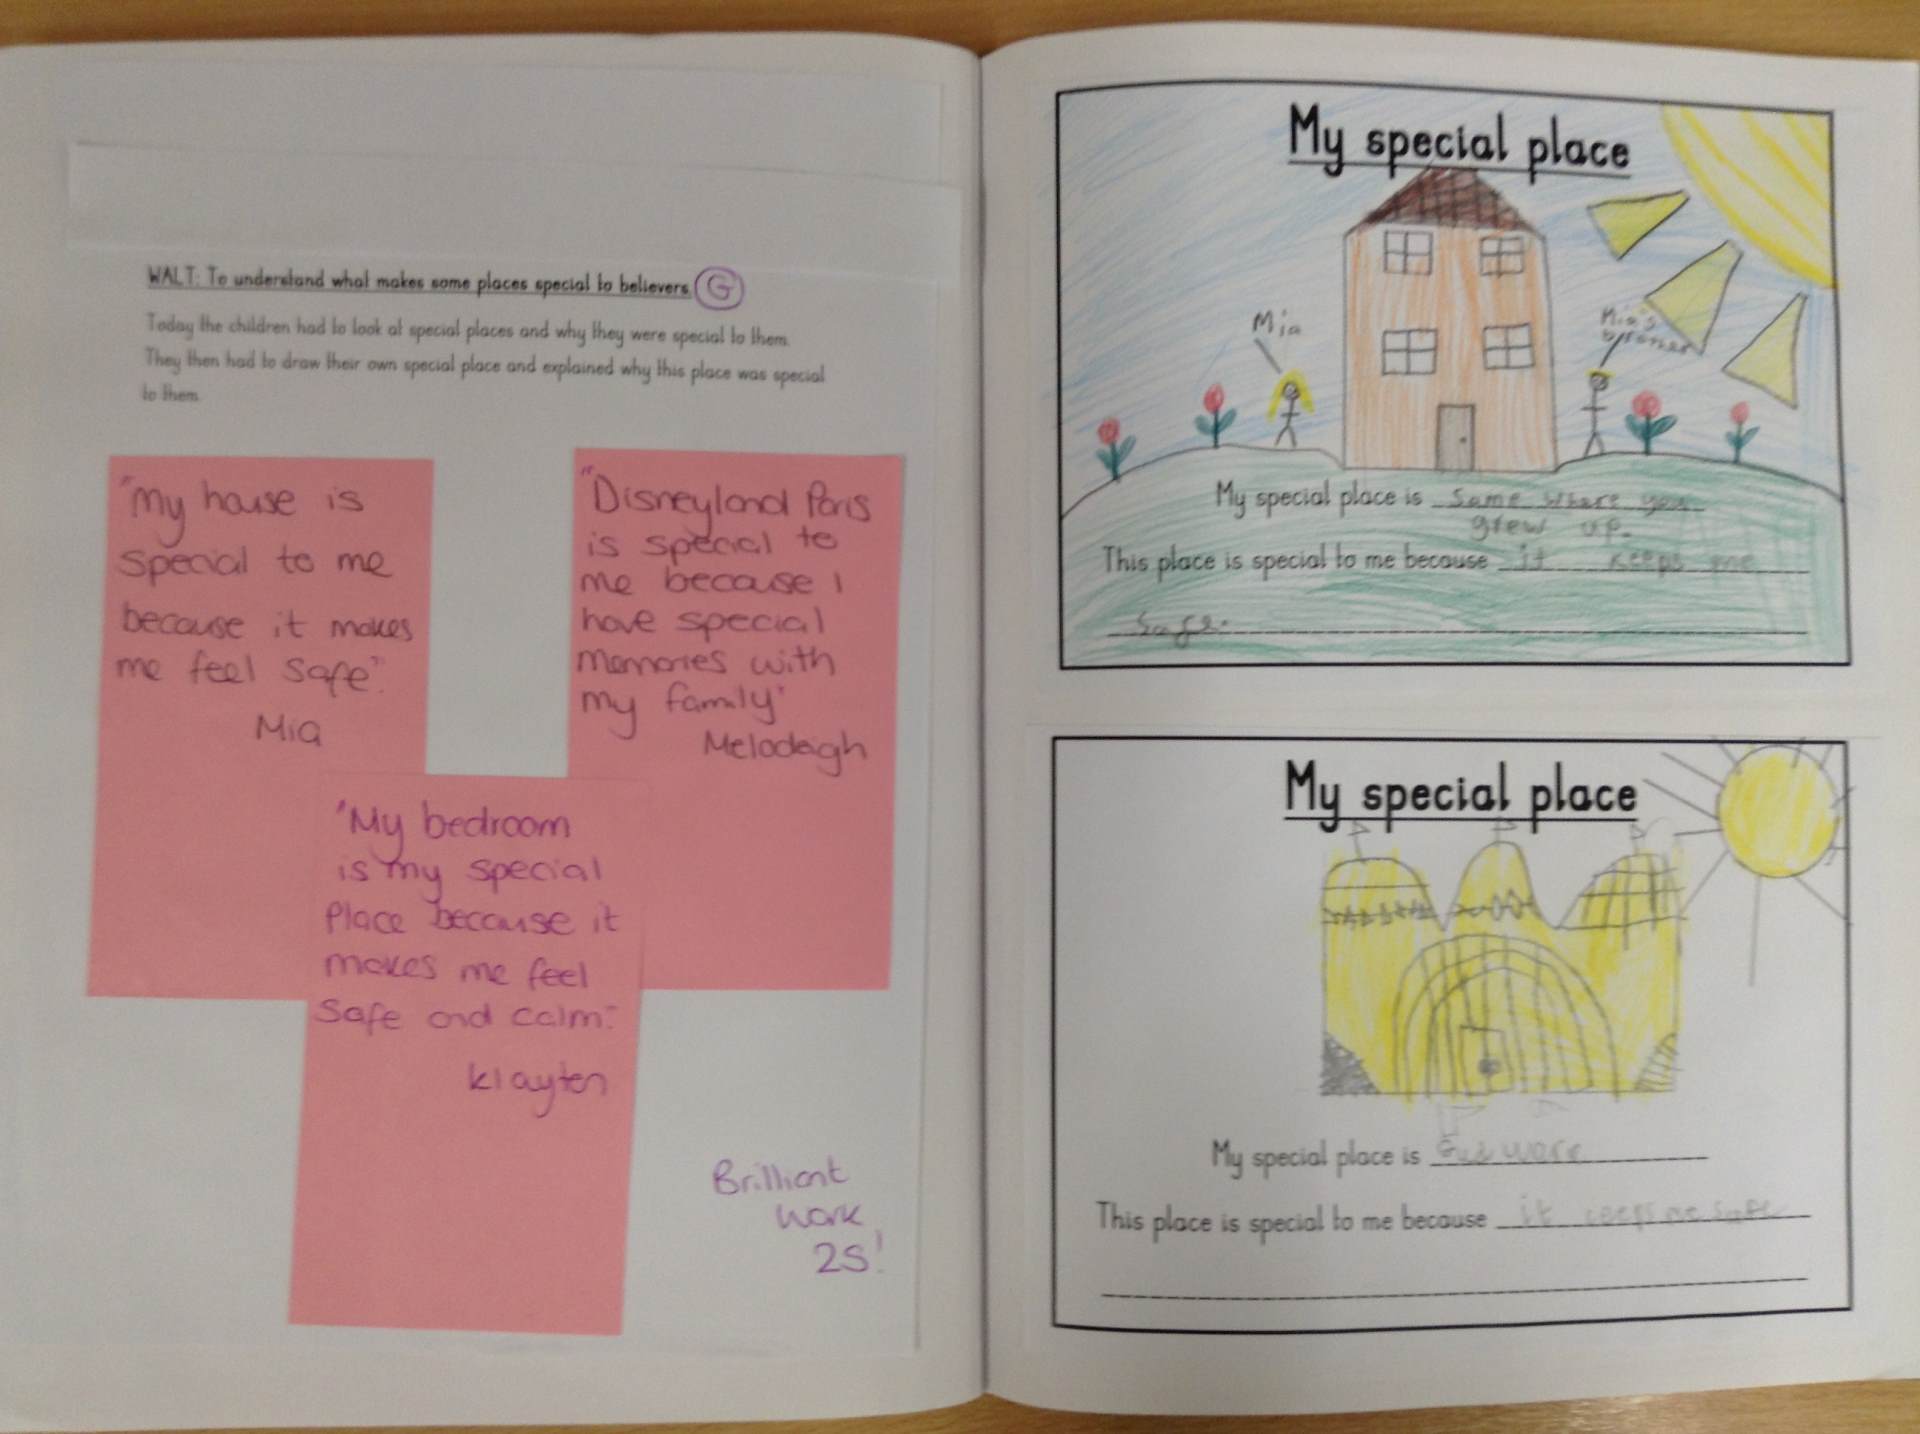 WALT: To understand what makes some places special to believers. G
Today the children had to look at special places and why they were special to them.
They then had to draw their own special place and explained why this place was special
to them.
"My house is
special to me
because it makes
me feel safe".
Mia
"Disneyland Paris
is special to
me because I
have special
memories with
my family"
Melodeigh
"My bedroom
is my special
place because it
makes me feel
safe and calm."
Klayten
Brilliant
work
2S!
My special place
Mia
Mia's
My special place is some where you
grew up.
This place is special to me because it keeps me
safe.
My special place
My special place is
This place is special to me because it keeps me safe